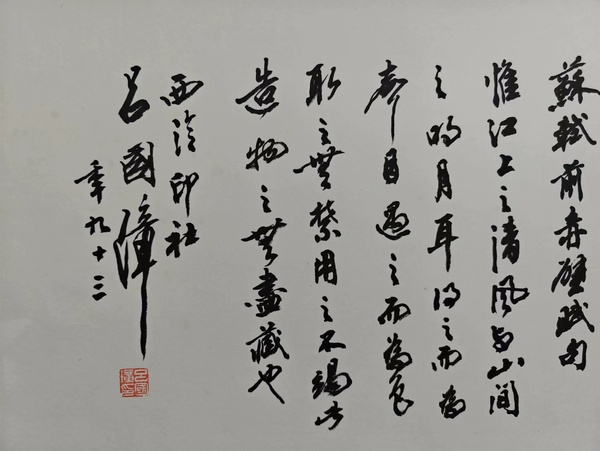 蘇軾前赤壁賦句
惟江上之清風与山間
之明月耳得之而為
声目遇之而為色
取之無禁用之不竭此
造物之無盡藏也
西泠印社
吕國璋
年九十三